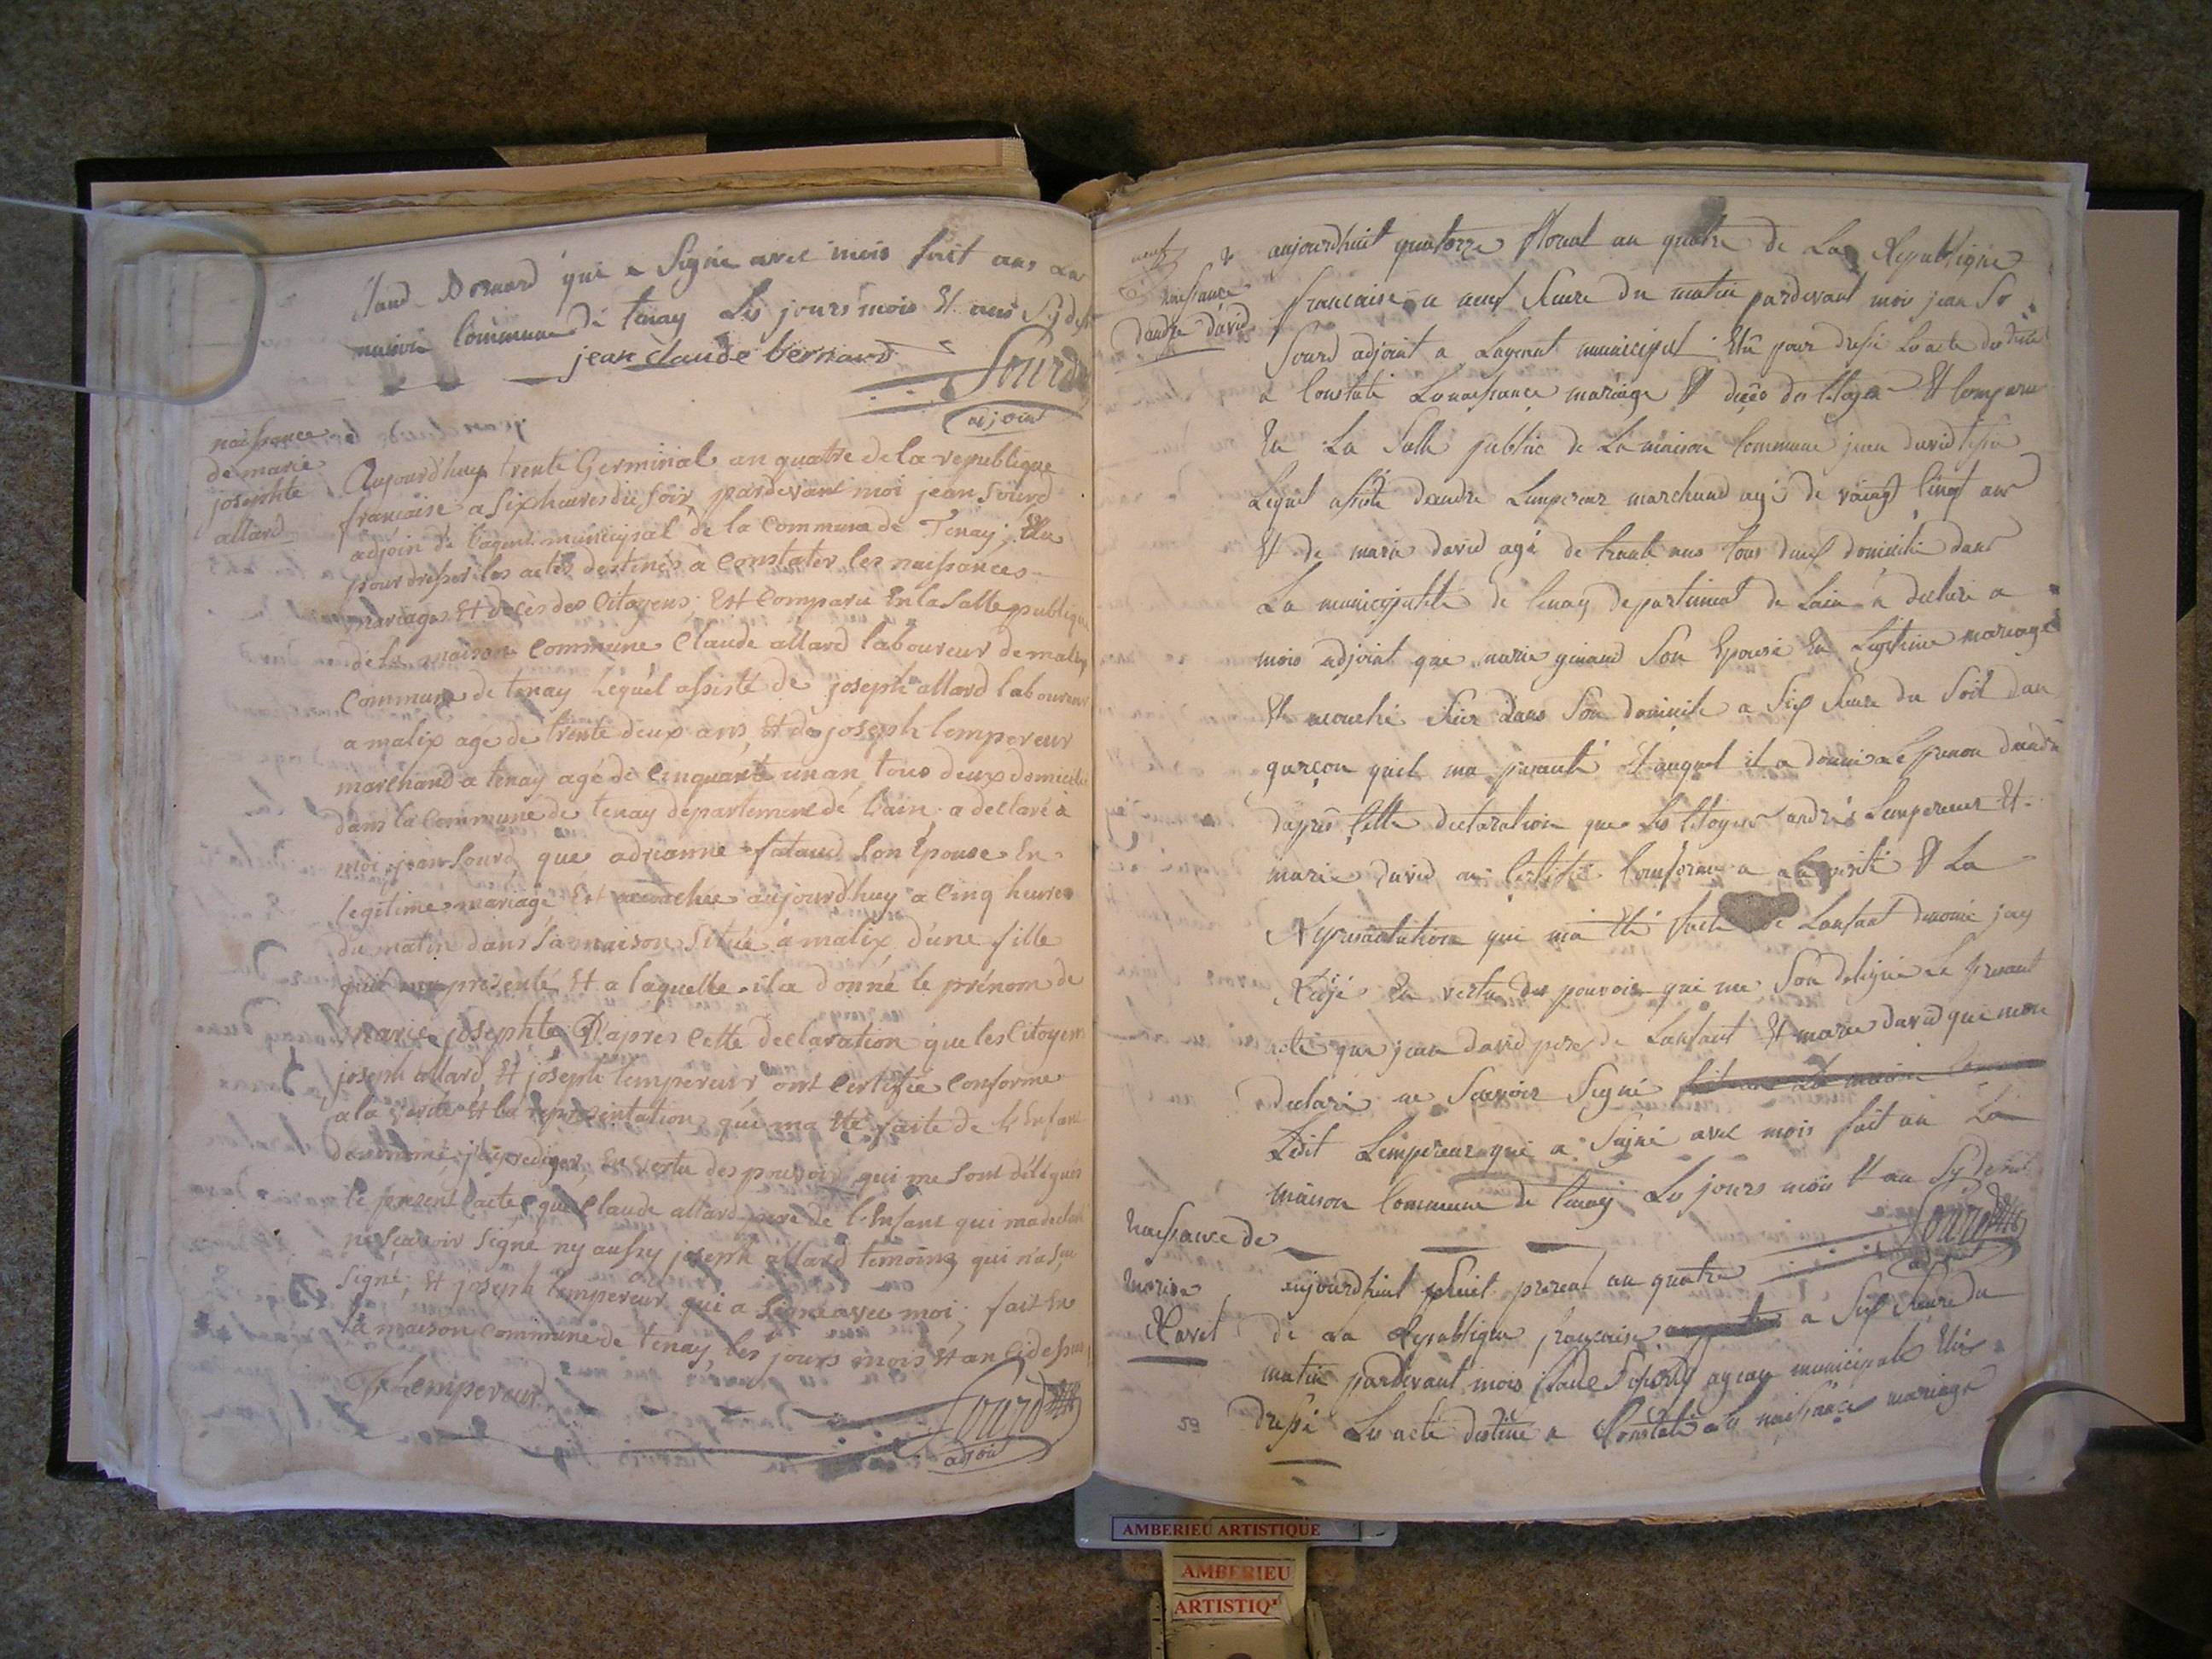 Claude Bernard qui a Signé avec mois fait ans La
maison Commune de tenay Les jours mois Et ans Sydes
jean claude bernard
Sourd
adjoint
naissance
de marie
josephte
allard
Aujourd'huy trente Germinal an quatre de la republique
francaise a Six heures du Soir, pardevant moi jean Sourd
adjoin de l'agent municipal de la Commune de Tenay; Elu
pour dresser les actes destinés à Constater les naissances
mariages Et decès des Citoyens; Est Comparu En la Salle publique
de la maison Commune Claude allard laboureur de malix
Commune de tenay Lequel assisté de joseph allard laboureur
a malix age de trente deux ans, Et de joseph lempereur
marchand a tenay agé de Cinquante un an, tous deux domicilie
dans la Commune de tenay departement de L'ain a declaré à
moi jean Sourd, que adrianne Son Epouse En
legitime mariage Est accouchée aujourd'huy a Cinq heures
du matin dans Sa maison Située a malix, d'une fille
quil ma présenté Et a laquelle il a donné le prénom de
marie josephte D'apres Cette declaration que les Citoyens
joseph allard, Et joseph lempereur ont Certifié Conforme
a la verité Et la representation qui ma été faite de l'Enfant
denommé, j'ai rediger, En vertu des pouvoirs qui me Sont délégués
le present acte, que Claude allard pere de l'Enfant qui ma declaré
ne Scavoir Signe ny aussy joseph allard temoins qui n'a Scu
Signé; Et joseph lempereur qui a Signé avec moi; fait En
la maison Commune de tenay, les jours mois Et an Cidessus
J Lempereur
Sourd
adjoin
neuf
naissance
dandre david
aujourdhuit quatorze floreal an quatre de La Republique
francaise a neuf heure du matin pardevant mois jean So
Sourd adjoint a Lagent municipal Elu pour dresse Les acte destine
a Constate La naissance mariage Et dece des Citoyen Et Comparu
En La Salle public de La maison Commune jean david
Lequel assisté dandre Lempereur marchand agé de vaingt Cinqt ans
Et de marie david agé de trante ans tous deux domicilié dans
La municipalité de tenay, departement de Lain a declare a
mois adjoint que marie Son Epouse En Legitime mariage
Et acouché hier dans Son domicile a Six heure du Soir dun
garçon quil ma presanté Et auquel il a donné Le prenom dandré
dapres Cette declaration que Les Citoyen andrés Lempereur Et
marie david on Certifié Conforme a la verité Et La
Representation qui ma Eté faite de Lanfant denomé jay
Redijé En vertu des pouvoir qui me Son deligué Le presant
acte que jean david pere de Lanfant Et marie david qui mon
declaré ne Savoir Signé
Ledit Lempereur qui a Signé avec mois fait an La
maison Commune de tenay Les jours mois Et an Sydesus
Sourd
adjoin
naissance de
marie
Ravet
aujourdhuit huit prereal an quatre
de La Republique francaise a Six heure du
matin pardevant mois agean municipale Elu
dresse Les acte destiné a Constaté La naissance mariage
59
AMBERIEU ARTISTIQUE
AMBERIEU
ARTISTIQ